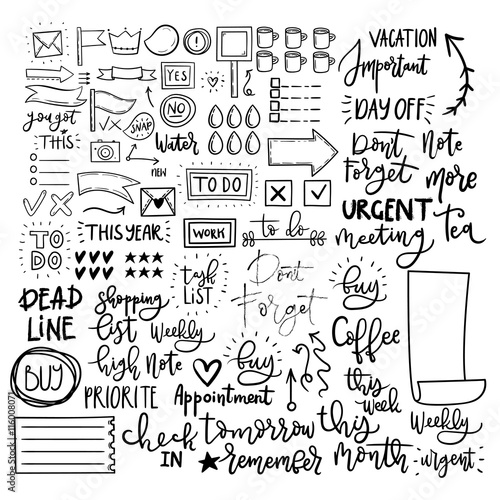 VACATION
Important
YES
you got
THIS
NO
SNAP
Water
DAY OFF
new
Don't
Forget
Note
more
TO DO
URGENT
meeting
tea
TO
DO
THIS YEAR
WORK
to do
DEAD
LINE
shopping
list
task
LIST
Don't
Forget
buy
Weekly
Coffee
high Note
buy
BUY
PRIORITE
Appointment
this
week
Weekly
check
IN
tomorrow
remember
this
Month
urgent
Adobe Stock | #116008071